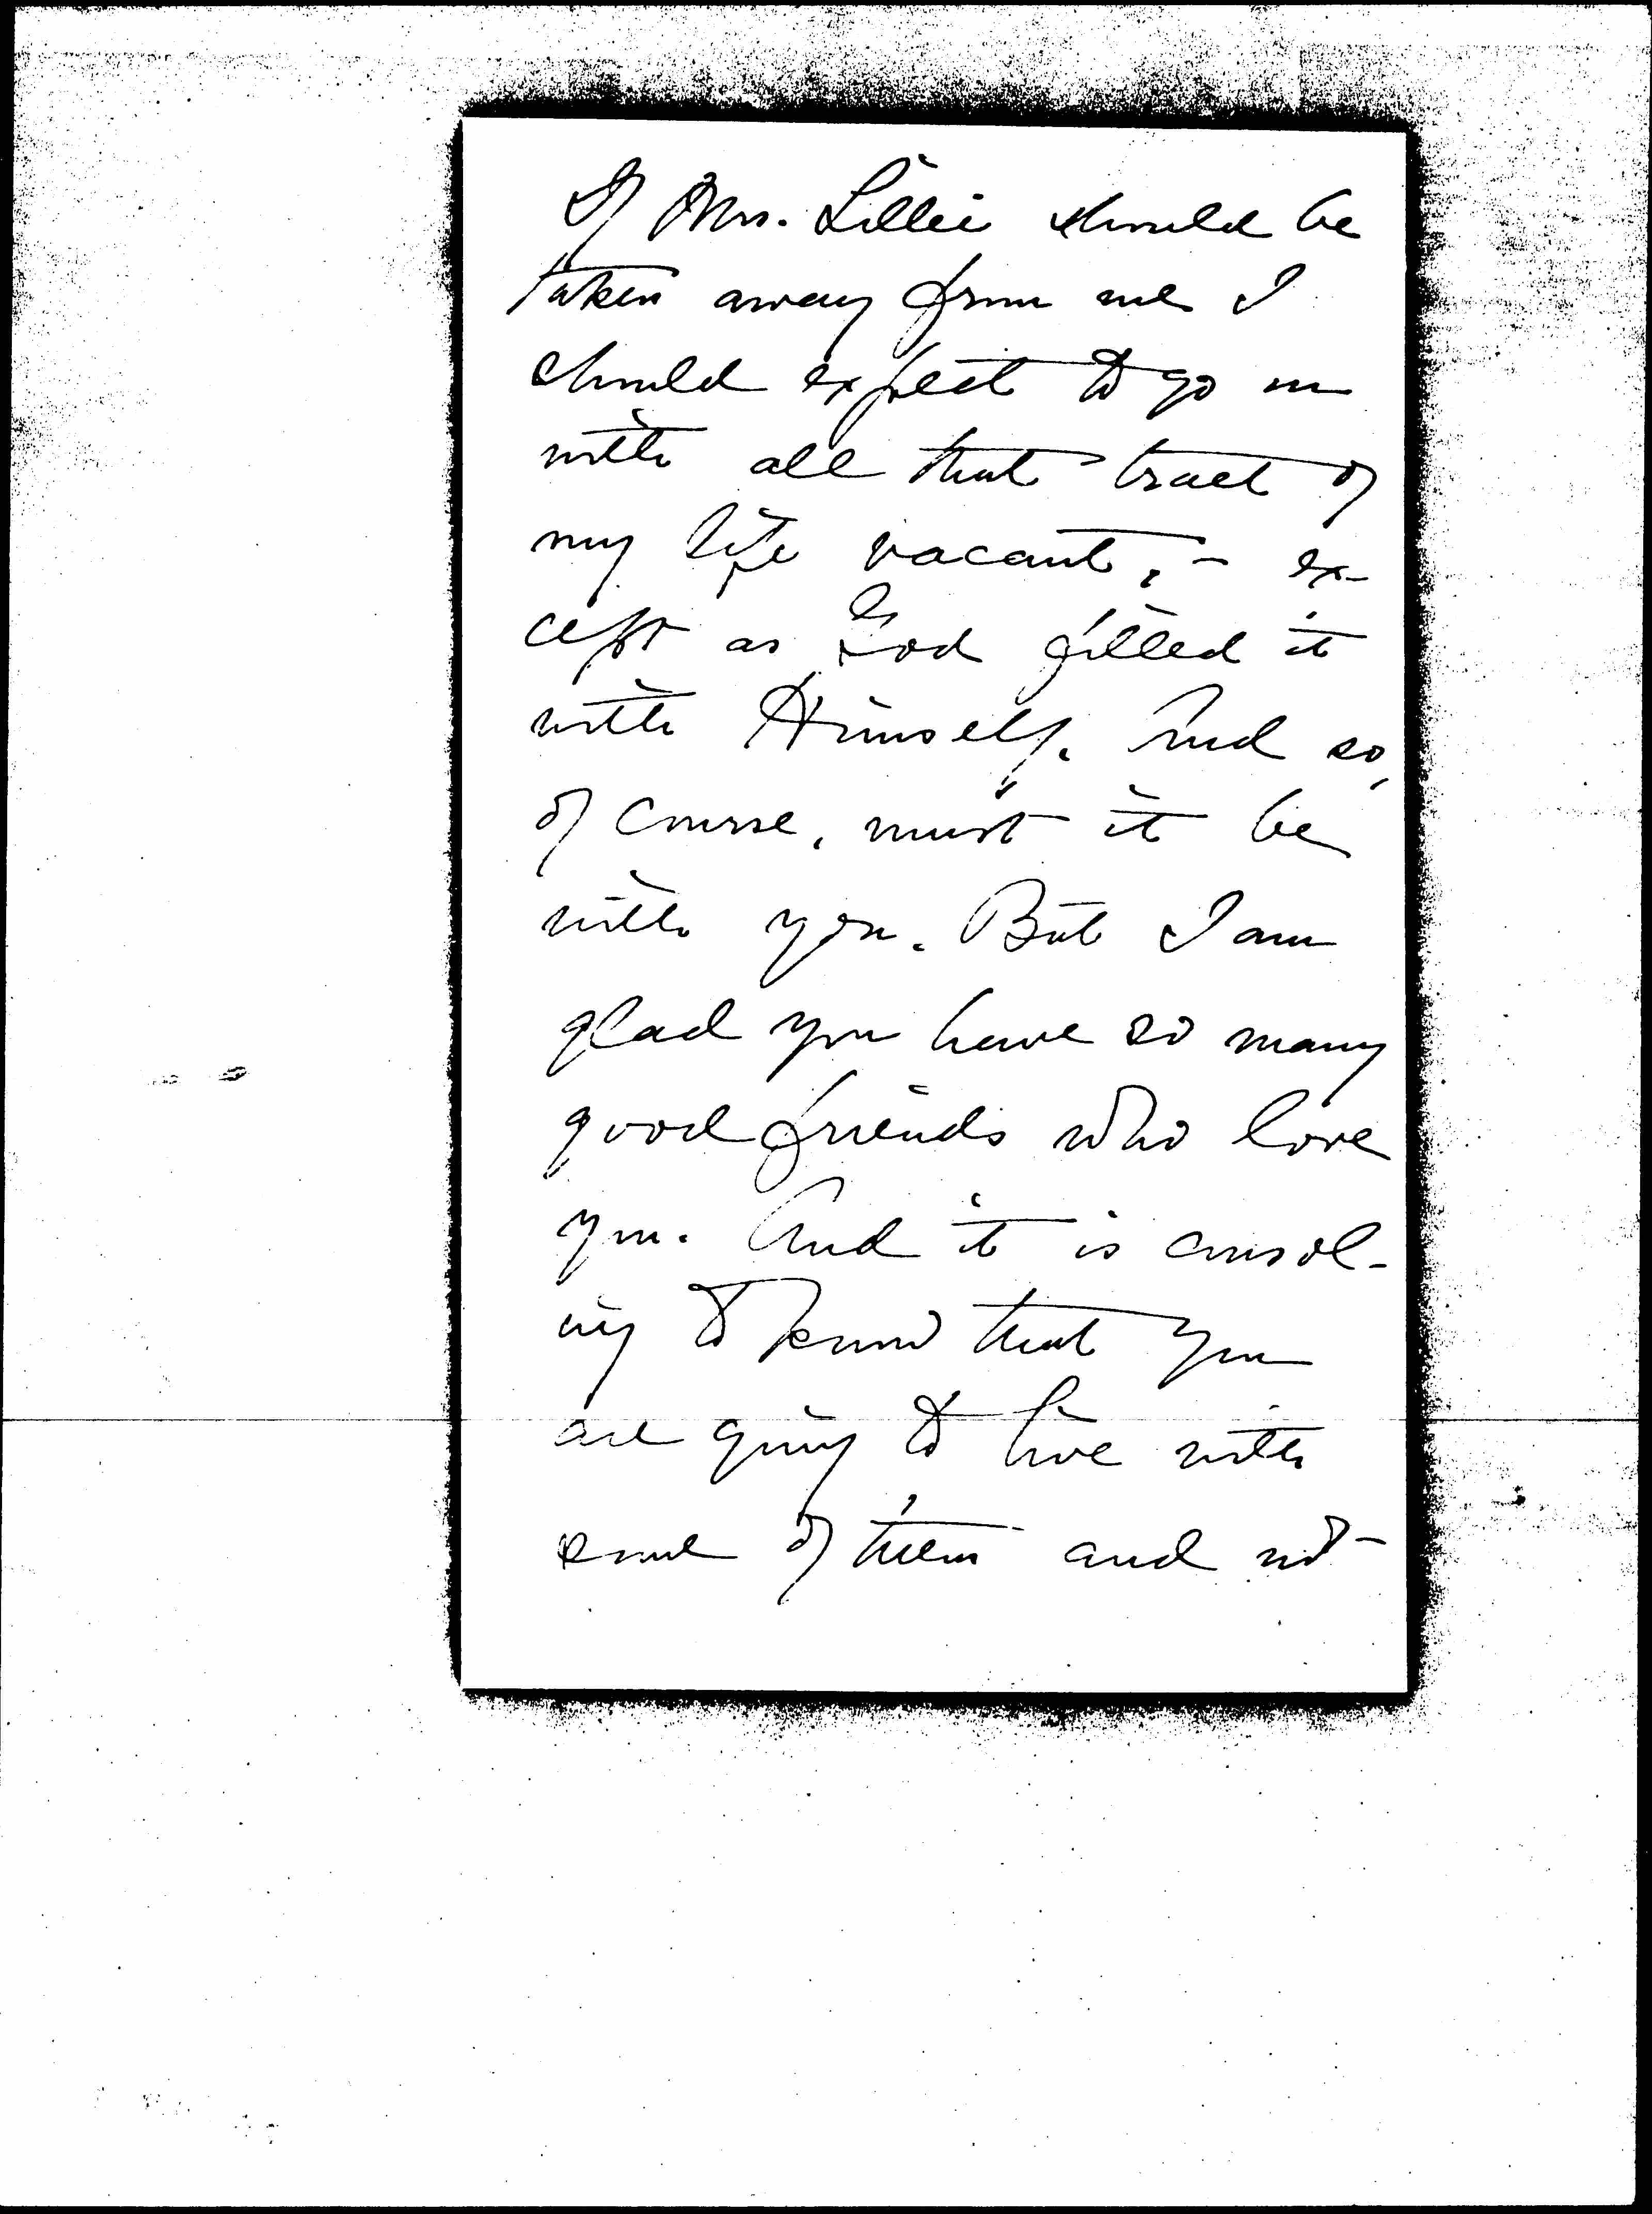 If Mrs. Lillie should be
taken away from me I
should expect to go on
with all that tract of
my life vacant, - ex-
cept as God filled it
with Himself. And so,
of course, must it be
with you. But I am
glad you have so many
good friends who love
you. And it is consol-
ing to know that you
are going to live with
some of them and not